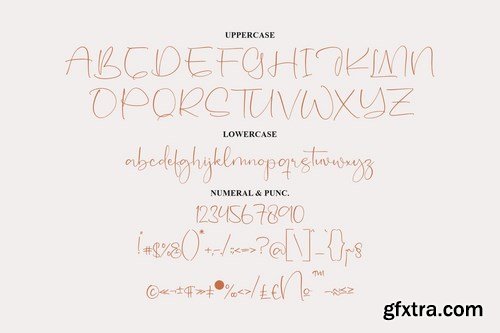 UPPERCASE
ABCDEFGHIJKLMN
OPQRSTUVWXYZ
LOWERCASE
abcdefghijklmnopqrstuvwxyz
NUMERAL & PUNC.
1234567890
!#$%&()*+,-./:;<=>?@[\]_`{}~§
©«¬±¶»‡●‰<>/£€
™
gfxtra.com